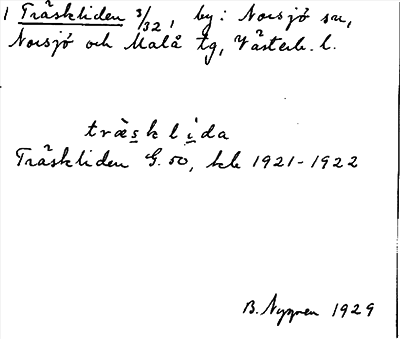 1 Träskliden 3/32, by: Norsjö sn,
Norsjö och Malå tg, Västerb. l.
träsklida
Träskliden G. 50, kb 1921-1922
B. Nygren 1929